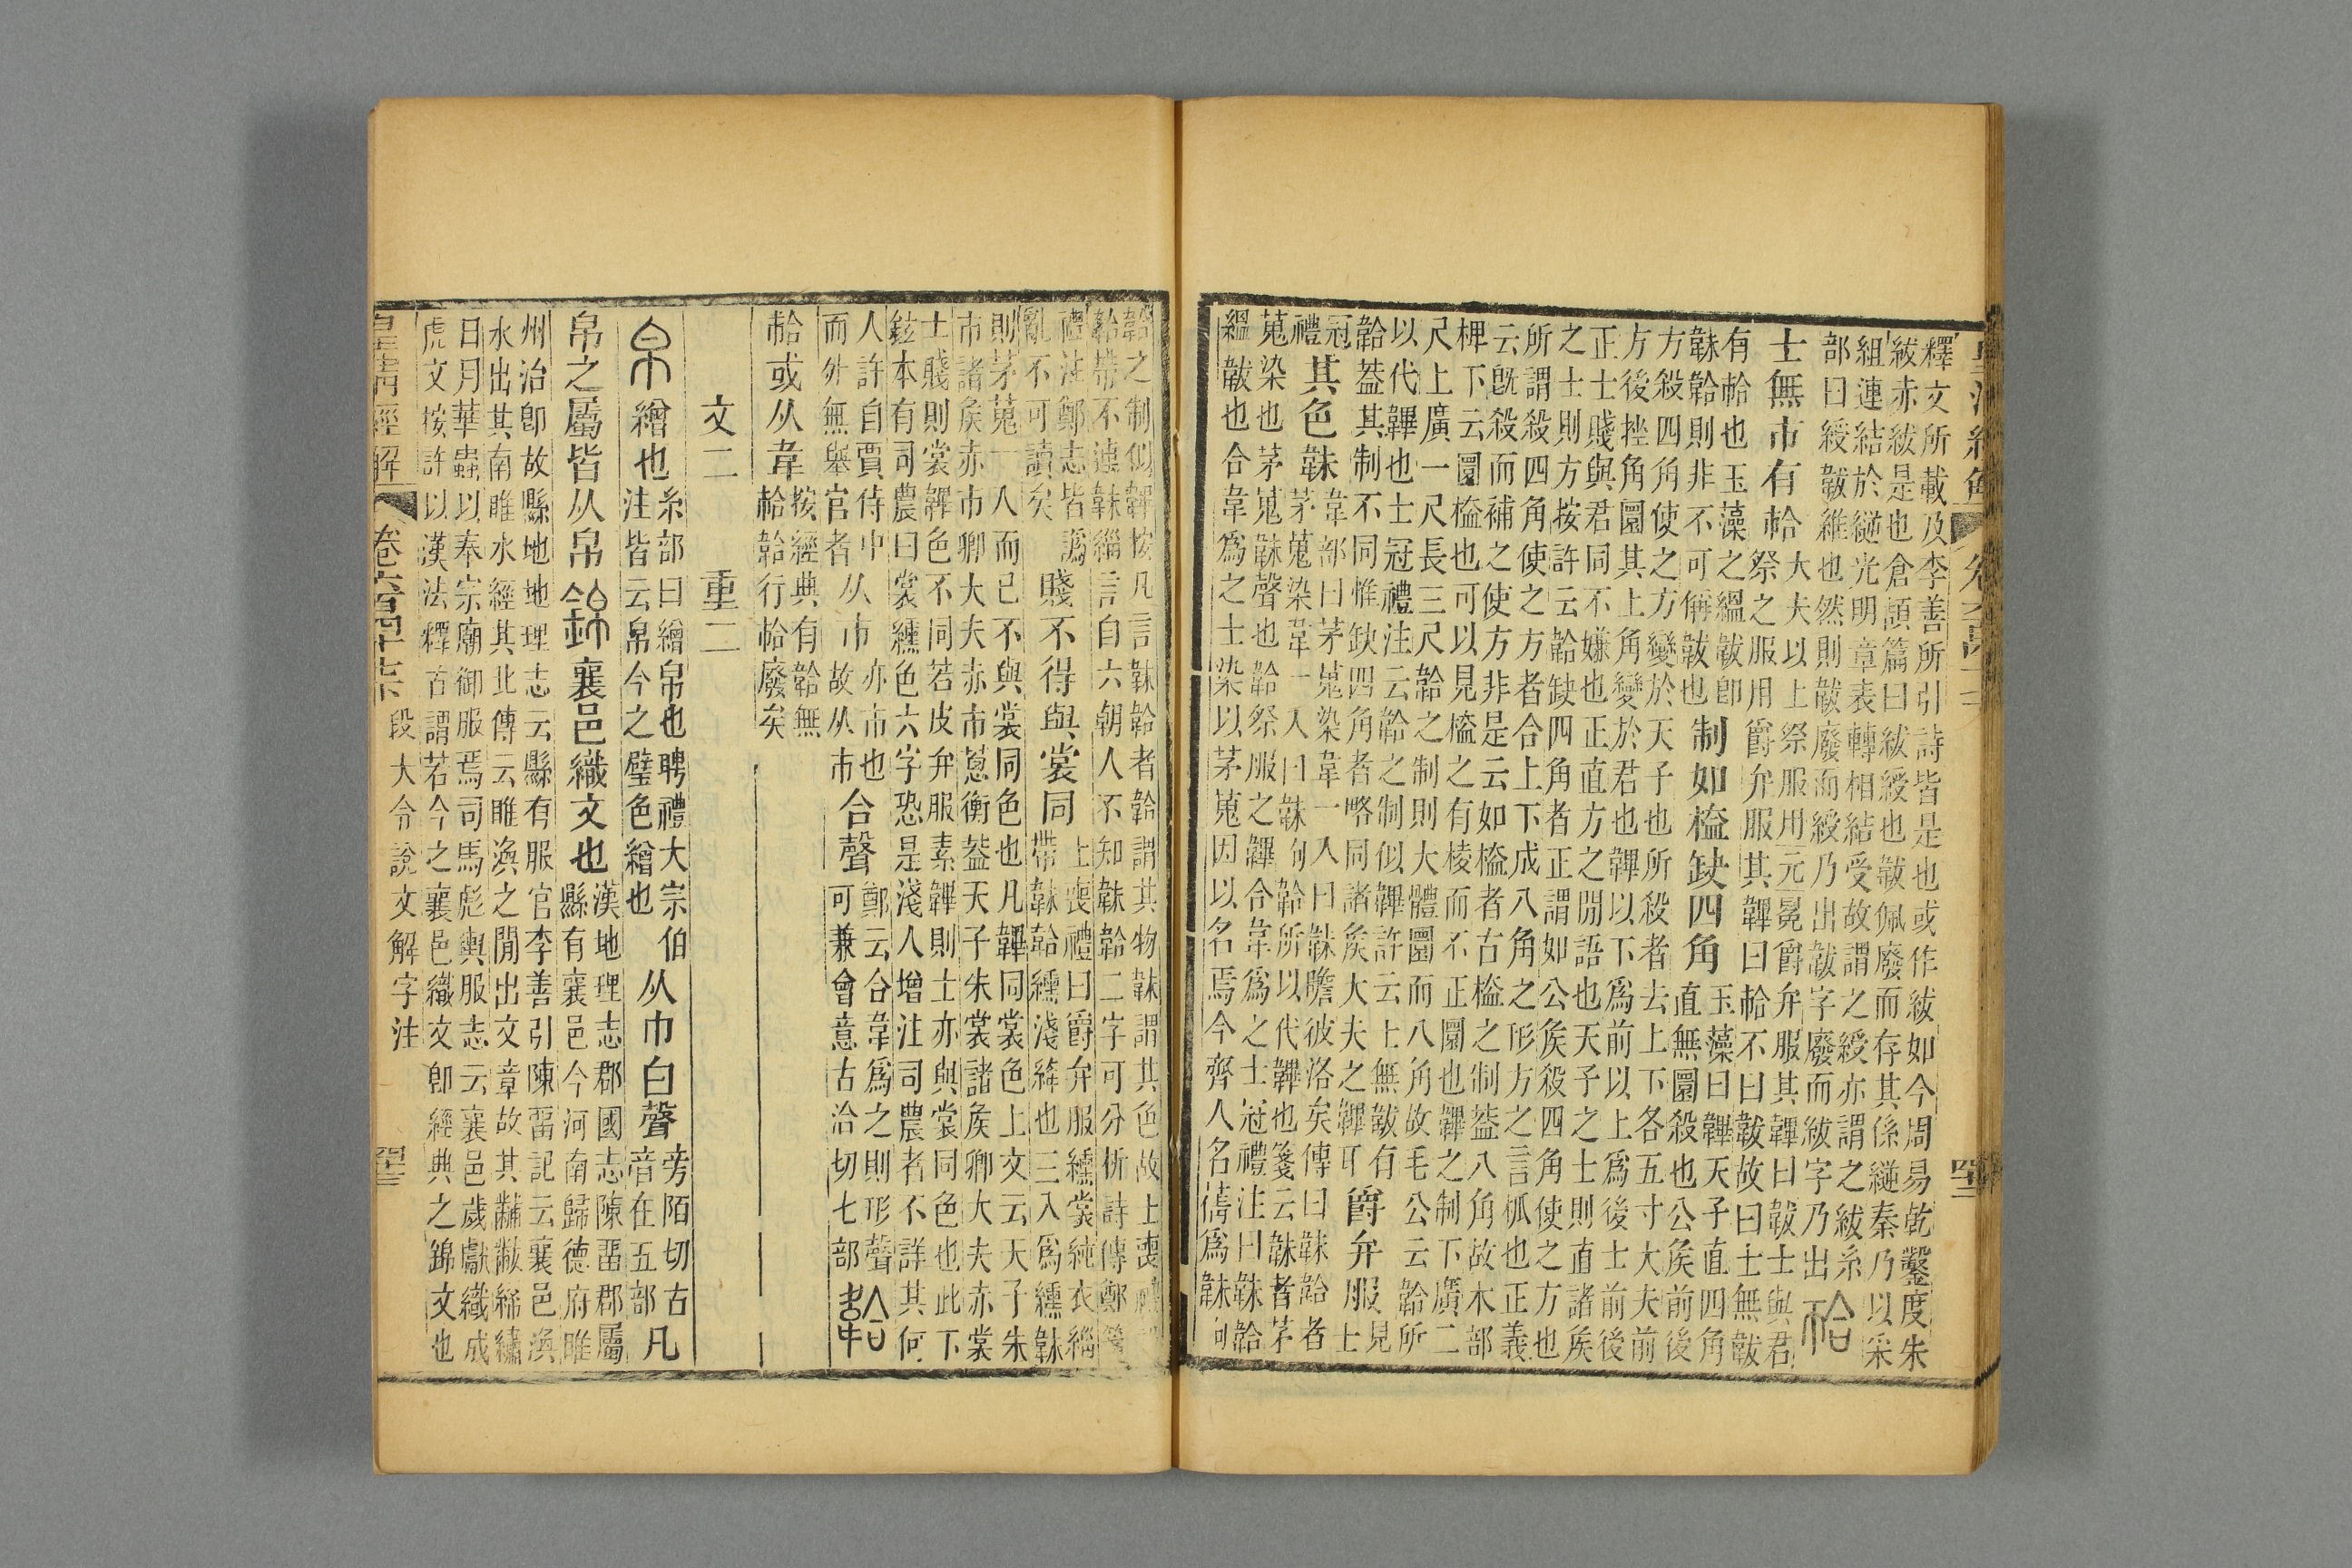 釋文所載及李善所引詩皆是也或作紱如今周易乾鑿度朱
紱赤紱是也倉頡篇曰紱綬也韍佩廢而存其係繸秦乃以采
組連結於繸光明章表轉相結受故謂之綬亦謂之紱糸
部曰綬韍維也然則韍廢而綬乃出韍字廢而紱字乃出
帢
士無市有帢
大夫以上祭服用元冕爵弁服其韠曰韍士與君
祭之服用爵弁服其韠曰帢不曰韍故曰士無韍
有帢也玉藻之縕韍卽
韎韐則非不可偁韍也
制如榼缺四角
玉藻曰韠天子直四角
直無圜殺也公矦前後
方殺四角使之方變於天子也所殺者去上下各五寸大夫前
方後挫角圜其上角變於君也韠以下爲前以上爲後士前後
正士賤與君同不嫌也正直方之閒語也天子之士則直諸矦
之士則方按許云韐缺四角者正謂如公矦殺四角使之方也
所謂殺四角使之方者合上下成八角之形方之言㼌也正義
云旣殺而補之使方非是云如榼者古榼之制葢八角故木部
椑下云圜榼也可以見榼之有棱而不正圜也韠之制下廣二
尺上廣一尺長三尺韐之制則大體圜而八角故毛公云韐所
以代韠也士冠禮注云韐之制似韠許云士無韍有
韐葢其制不同惟缺四角者略同諸矦大夫之韠耳
爵弁服
見士
冠禮
其色韎
韋部曰茅蒐染韋一入曰韎瞻彼洛矣傳曰韎韐者
茅蒐染韋一入曰韎句韐所以代韠也箋云韎者茅
蒐染也茅蒐韎聲也韐祭服之韠合韋爲之士冠禮注曰韎韐
縕韍也合韋爲之士染以茅蒐因以名焉今齊人名蒨爲韎句
韐之制似韠按凡言韎韐者韐謂其物韎謂其色故士喪禮
韐帶不連韎緇言自六朝人不知韎韐二字可分析詩傳鄭箋
禮注鄭志皆譌
亂不可讀矣
賤不得與裳同
士喪禮曰爵弁服纁裳純衣緇
帶韎韐纁淺絳也三入爲纁韎
則茅蒐一入而已不與裳同色也凡韠同裳色上文云天子朱
市諸矦赤市卿大夫赤市蔥衡葢天子朱裳諸矦卿大夫赤裳
士賤則裳韠色不同若皮弁服素韠則士亦與裳同色也此下
鉉本有司農曰裳纁色六字恐是淺人增注司農者不詳其何
人許自賈侍中
而外無舉官者
从市
亦市也
故从市
合聲
鄭云合韋爲之則形聲
可兼會意古洽切七部
韐
帢或从韋
按經典有韐無
帢韐行帢廢矣
文二 重二
帛繒也
糸部曰繒帛也聘禮大宗伯
注皆云帛今之璧色繒也
从巾白聲
旁陌切古
音在五部
凡
帛之屬皆从帛
錦襄邑織文也
漢地理志郡國志陳畱郡屬
縣有襄邑今河南歸德府睢
州治卽故縣地地理志云縣有服官李善引陳畱記云襄邑渙
水出其南睢水經其北傳云睢渙之閒出文章故其黼黻絺繡
日月華蟲以奉宗廟御服焉司馬彪輿服志云襄邑歲獻織成
虎文按許以漢法釋古謂若今之襄邑織文卽經典之錦文也
皇淸經解 卷六百四十七下 段大令說文解字注